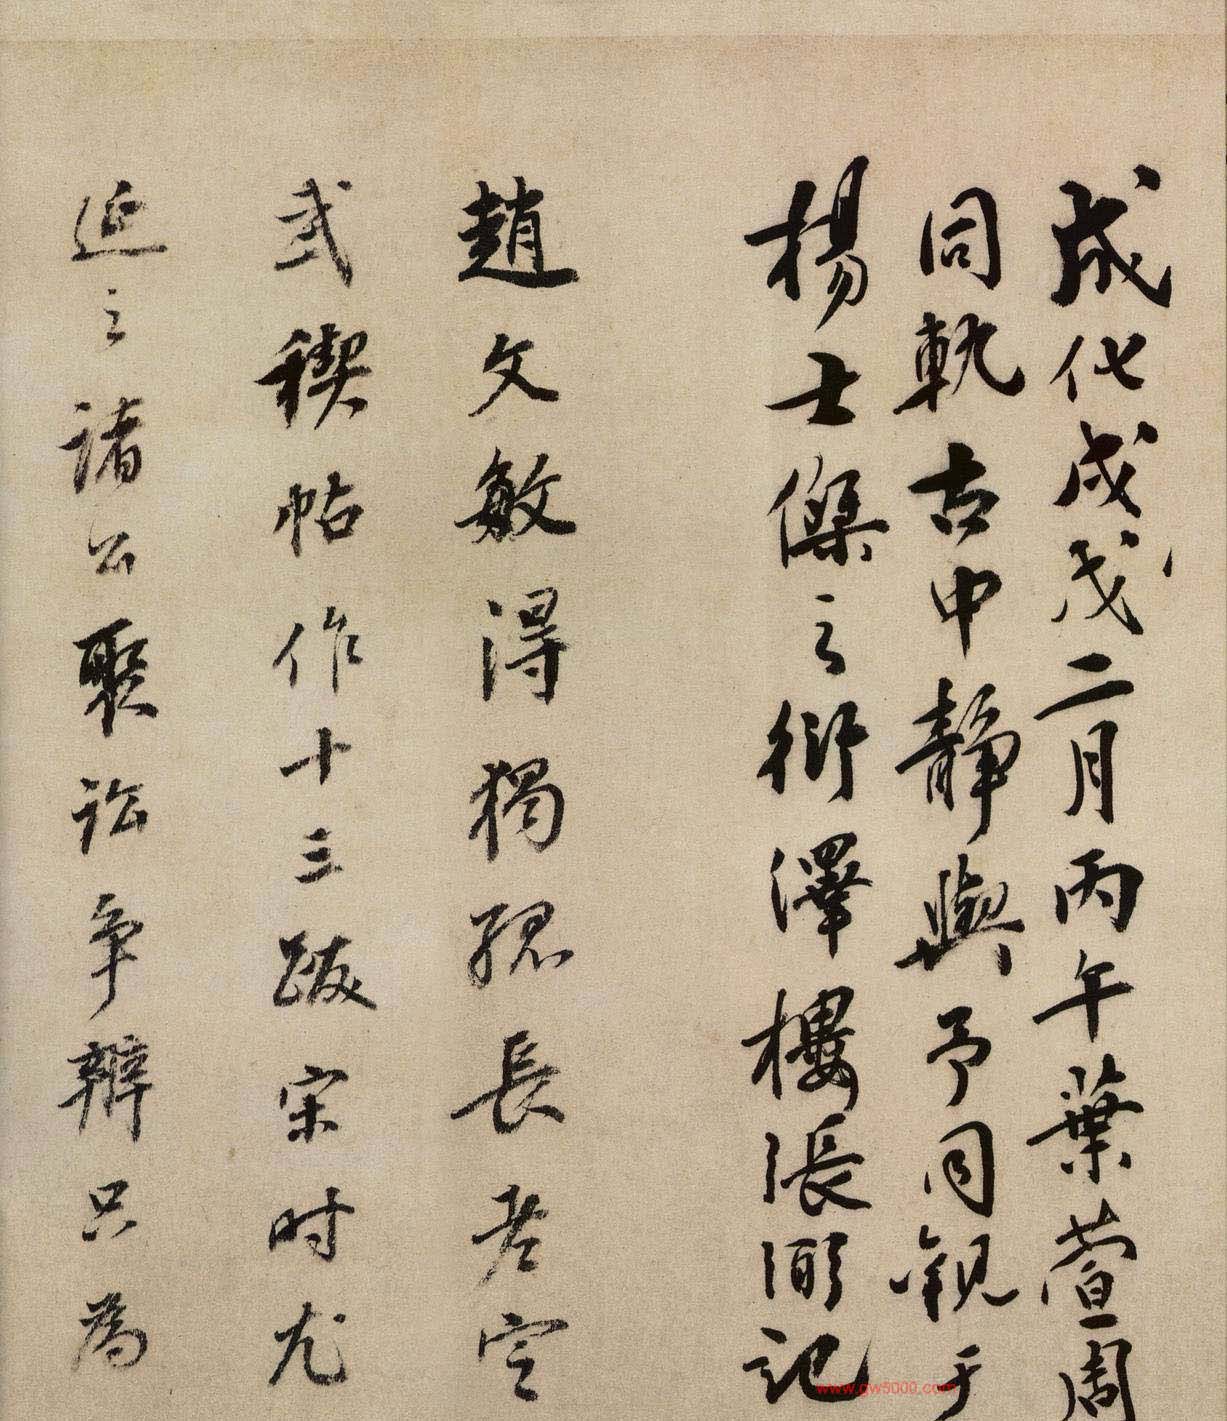 成化戌戊二月丙午葉萱周
同軌古中靜與予同觀于
楊士傑之衍澤樓張弼記
趙文敏得獨孤長老定
武禊帖作十三跋宋时尤
延之諸公聚訟争辨只為
www.gw5000.com